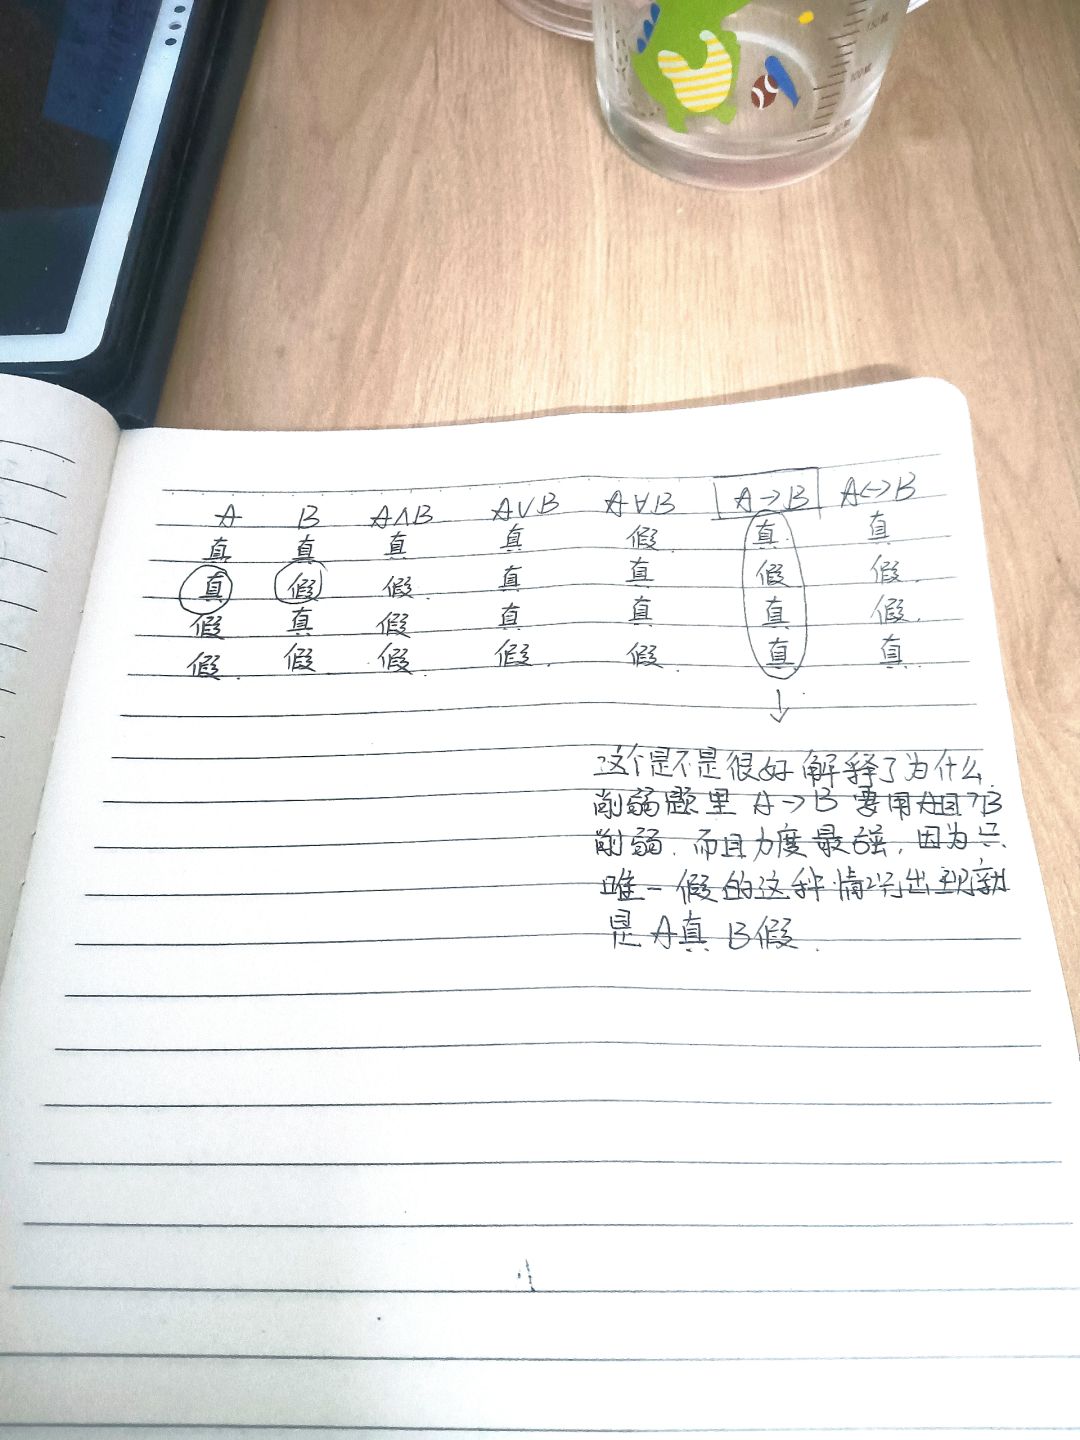 A B A∧B A∨B A∀B A→B A↔B
真 真 真 真 假 真 真
真 假 假 真 真 假 假
假 真 假 真 真 真 假
假 假 假 假 假 真 真
这个是不是很好解释了为什么
削弱题里 A→B 要用A且¬B
削弱.而且力度最强,因为
唯一假的这种情况出现
是 A真 B假.